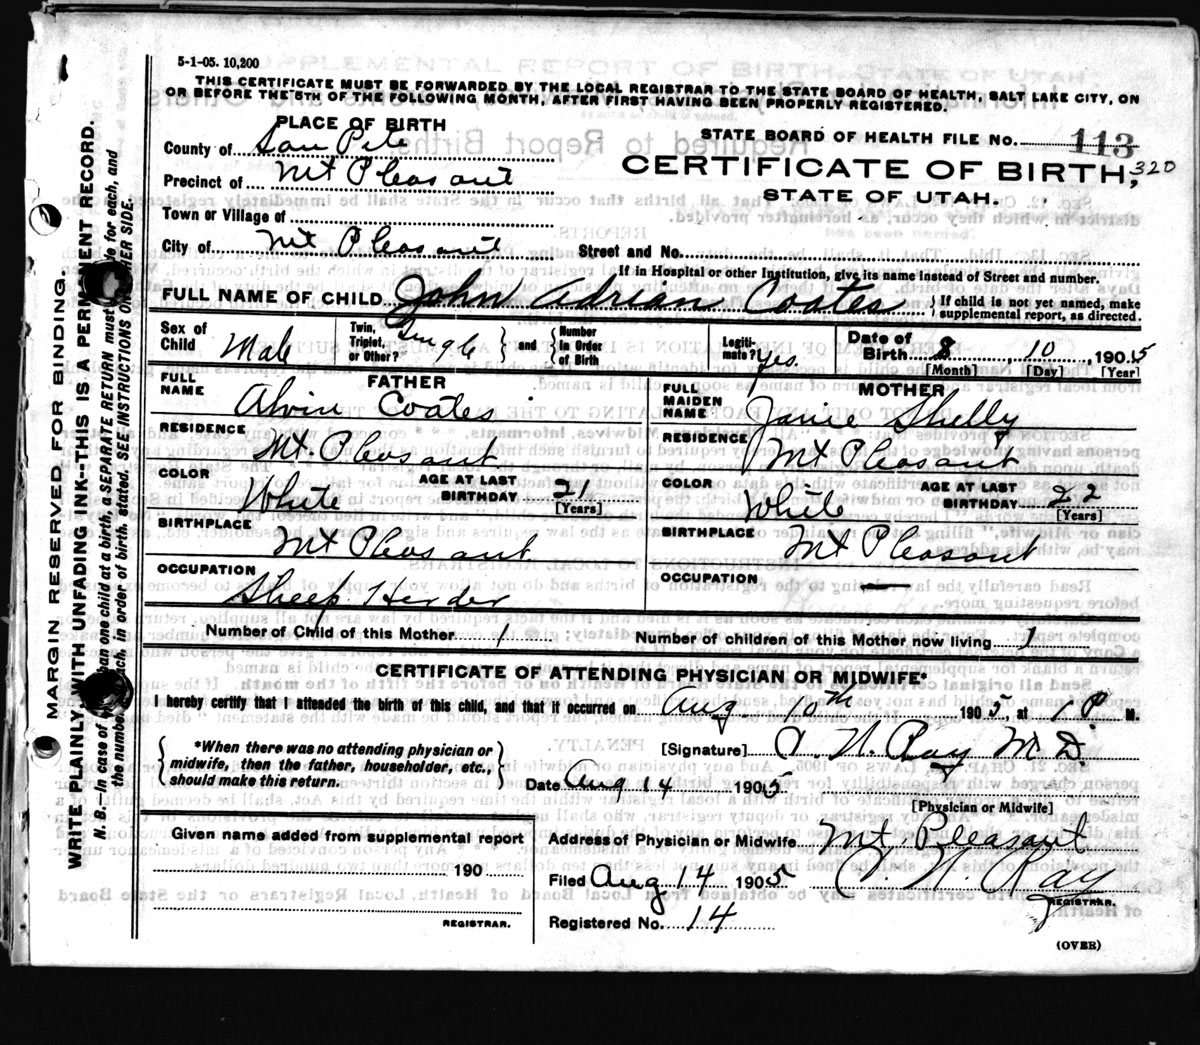 5-1-05. 10,200
THIS CERTIFICATE MUST BE FORWARDED BY THE LOCAL REGISTRAR TO THE STATE BOARD OF HEALTH, SALT LAKE CITY, ON
OR BEFORE THE 5TH OF THE FOLLOWING MONTH, AFTER FIRST HAVING BEEN PROPERLY REGISTERED.
PLACE OF BIRTH
County of San Pete
Precinct of Mt Pleasant
Town or Village of
City of Mt Pleasant
STATE BOARD OF HEALTH FILE No. 113
CERTIFICATE OF BIRTH, 320
STATE OF UTAH.
Street and No.
If in Hospital or other Institution, give its name instead of Street and number.
FULL NAME OF CHILD John Adrian Coates
If child is not yet named, make
supplemental report, as directed.
Sex of Child Male
Twin, Triplet, or Other? Single
and Number in Order of Birth
Legitimate? Yes.
Date of Birth 8, 10, 1905
[Month] [Day] [Year]
FATHER
FULL NAME Alvin Coates
RESIDENCE Mt. Pleasant
COLOR White AGE AT LAST BIRTHDAY 21
[Years]
BIRTHPLACE Mt Pleasant
OCCUPATION Sheep Herder
MOTHER
FULL MAIDEN NAME Janie Shelly
RESIDENCE Mt Pleasant
COLOR White AGE AT LAST BIRTHDAY 22
[Years]
BIRTHPLACE Mt Pleasant
OCCUPATION —
Number of Child of this Mother 1 Number of children of this Mother now living 1
CERTIFICATE OF ATTENDING PHYSICIAN OR MIDWIFE*
I hereby certify that I attended the birth of this child, and that it occurred on Aug 10th 1905, at 1 P. M.
*When there was no attending physician or
midwife, then the father, householder, etc.,
should make this return.
[Signature] W. Ray M.D.
Date Aug 14 1905.
[Physician or Midwife]
Given name added from supplemental report
190
REGISTRAR.
Address of Physician or Midwife Mt Pleasant
Filed Aug 14 1905 W. Ray
REGISTRAR.
Registered No. 14
(OVER)
MARGIN RESERVED FOR BINDING.
WRITE PLAINLY WITH UNFADING INK--THIS IS A PERMANENT RECORD.
N. B. In case of than one child at a birth, a SEPARATE RETURN must be made for each, and
the number each, in order of birth, stated. SEE INSTRUCTIONS ON OTHER SIDE.